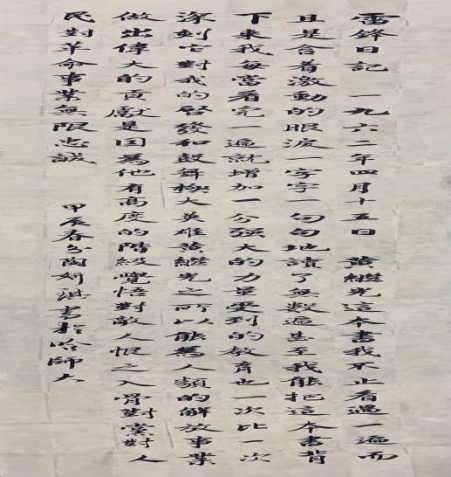 雷鋒日記 一九六二年四月十五日 黄繼光這本書我不止看過一遍而
且是含着激動的眼淚一字字一句句地讀了無數遍甚至我能把這本書背
下來我每當看完一遍就增加一分强大的力量受到的教育也一次比一次
深刻它對我的啓發和鼓舞極大英雄黄繼光之所以能為人類的解放事業
做出偉大的貢獻是因為他有高度的階級覺悟對敵人恨之入骨對黨對人
民對革命事業無限忠誠 甲辰春 書於哈師大